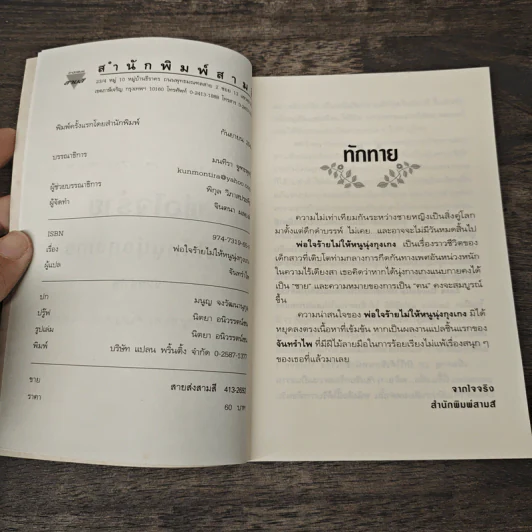 สำนักพิมพ์สาม
23/4 หมู่ 10 หมู่บ้านธีรากร ถนนพุทธมณฑลสาย 2 ซอย 13
เขตภาษีเจริญ กรุงเทพฯ 10160 โทรศัพท์ 0-2413-1388 โทรสาร
พิมพ์ครั้งแรกโดยสำนักพิมพ์
กันยายน
บรรณาธิการ
มนทิรา
kunmontira@yahoo
ผู้ช่วยบรรณาธิการ
พิกุล
ผู้จัดทำ
จินตนา
ISBN
974-7319-
เรื่อง
พ่อใจร้ายไม่ให้หนูนุ่งกุงเกง
ผู้แปล
จันทรำไพ
ปก
มนูญ จงวัฒนานุกูล
ปรู๊ฟ
นิตยา อนิวรรตน์ชน
รูปเล่ม
นิตยา อนิวรรตน์ชน
พิมพ์
บริษัท แปลน พริ้นติ้ง จำกัด 0-2587-1377
ขาย
สายส่งสามสี 413-2680
ราคา
60 บาท
ทักทาย
ความไม่เท่าเทียมกันระหว่างชายหญิงเป็นสิ่งคู่โลก
มาตั้งแต่ดึกดำบรรพ์ ไม่เคย.. และอาจจะไม่มีวันหมดสิ้นไป
พ่อใจร้ายไม่ให้หนูนุ่งกุงเกง เป็นเรื่องราวชีวิตของ
เด็กสาวที่เติบโตท่ามกลางการกีดกันทางเพศอันหน่วงหนัก
ในความไร้เดียงสา เธอคิดว่าหากได้นุ่งกางเกงแนบกายคงได้
เป็น "ชาย" และความหมายของการเป็น "คน" คงจะสมบูรณ์
ขึ้น
ความน่าสนใจของ พ่อใจร้ายไม่ให้หนูนุ่งกุงเกง มิได้
หยุดลงตรงเนื้อหาที่เข้มข้น หากเป็นผลงานแปลชิ้นแรกของ
จันทรำไพ ที่มีฝีไม้ลายมือในการร้อยเรียงไม่แพ้เรื่องสนุก ๆ
ของเธอที่แล้วมาเลย
จากใจจริง
สำนักพิมพ์สามสี